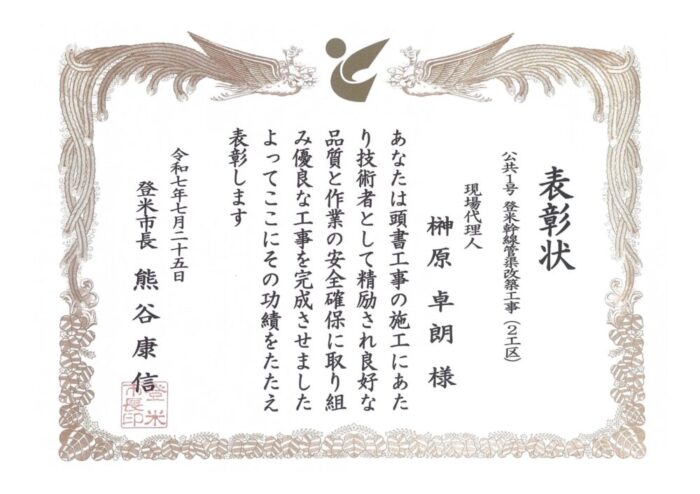 表彰状
公共1号 登米幹線管渠改築工事(2工区)
現場代理人
榊原卓朗様
あなたは頭書工事の施工にあた
り技術者として精励され良好な
品質と作業の安全確保に取り組
み優良な工事を完成させました
よってここにその功績をたたえ
表彰します
令和七年七月二十五日
登米市長 熊谷康信
登米市長印